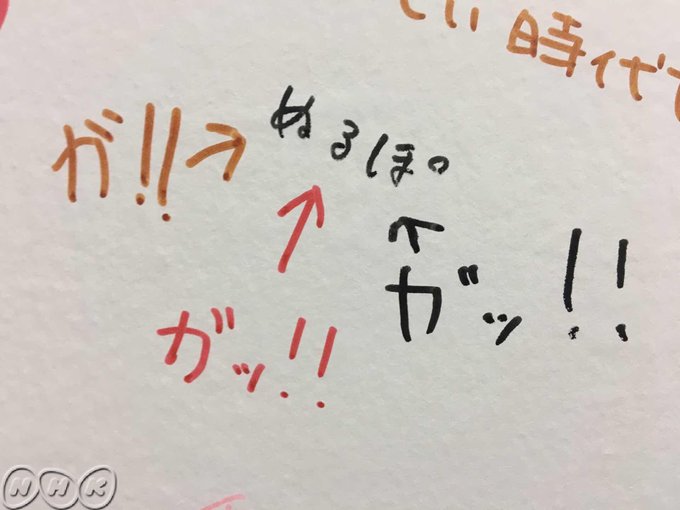 い時代
が!!→
ぬるぽ。
↑
↑
ガッ!!
ガッ!!
NHK